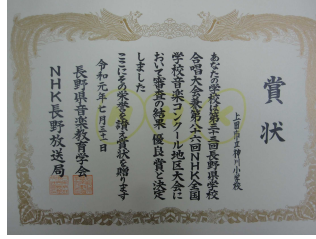 賞状
上田市立神川小学校
あなたの学校は第三十三回長野県学校
合唱大会兼第八十六回NHK全国
学校音楽コンクール地区大会に
おいて審査の結果優良賞と決定
しました
ここにその栄誉を讃え賞状を贈ります
令和元年七月三十一日
長野県音楽教育学会
NHK長野放送局